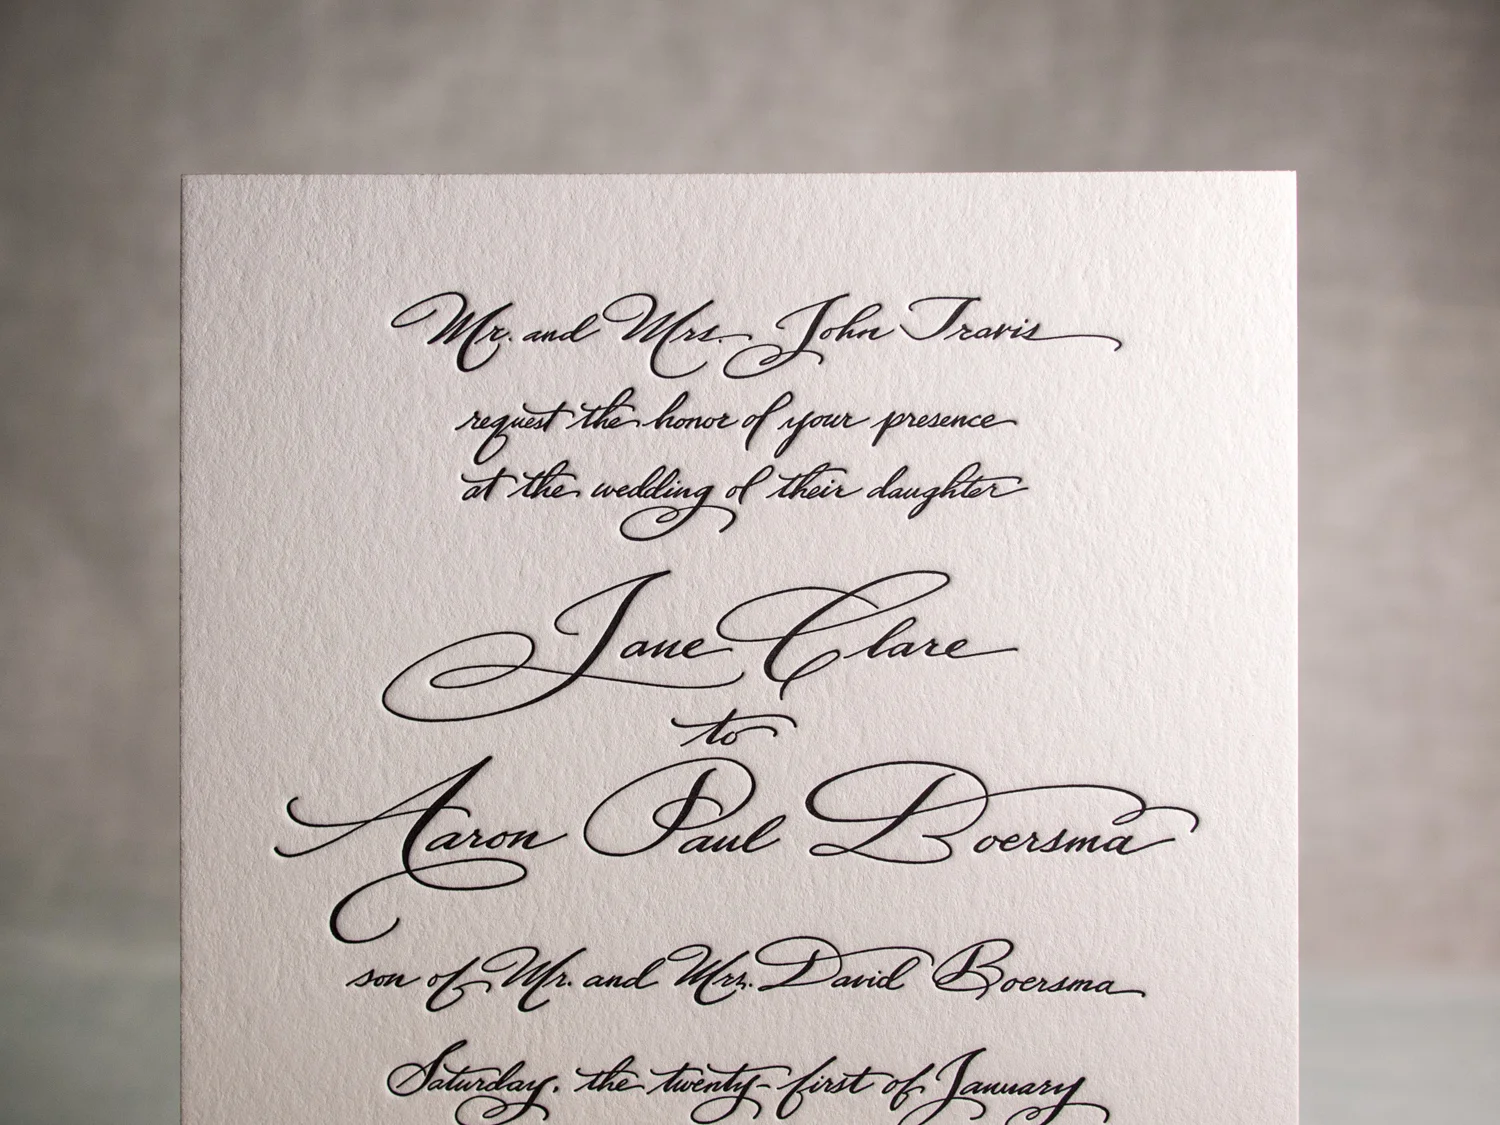 Mr. and Mrs. John Travis
request the honor of your presence
at the wedding of their daughter
Jane Clare
to
Aaron Paul Boersma
son of Mr. and Mrs. David Boersma
Saturday, the twenty-first of January